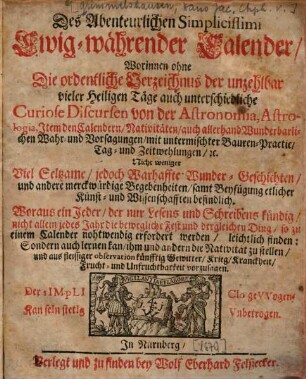 Des Abenteurlichen Simplicissimi
Ewig-währender Calender/
Worinnen ohne
Die ordentliche Verzeichnus der unzehlbar
vieler Heiligen Täge auch unterschiedliche
Curiose Discursen von der Astronomia, Astro-
logia, Item den Calendern, Nativitäten, auch allerhand Wunderbarli-
chen Wahr- und Vorsagungen/ mit untermischter Bauren-Practic/
Tag- und Zeitwehlungen/ ꝛc.
Nicht weniger
Viel Seltzame/ jedoch Warhaffte Wunder-Geschichten/
und andere merckwürdige Begebenheiten/ samt Beyfügung etlicher
Künst- und Wissenschafften befindlich.
Woraus ein Jeder/ der nur Lesens und Schreibens kündig/
nicht allein jedes Jahr die bewegliche Fest und dergleichen Ding/ so zu
einem Calender nohtwendig erfordert werden/ leichtlich finden:
Sondern auch lernen kan/ ihm und andern die Nativität zu stellen/
und aus fleissiger observation künfftig Gewitter/ Krieg/ Kranckheit/
Frucht- und Unfruchtbarkeit vorzusagen.
Der sIMpLI
Kan seIn stetIg
VnbetrogeN.
In Nürnberg/
Verlegt und zu finden bey Wolf Eberhard Felsecker.